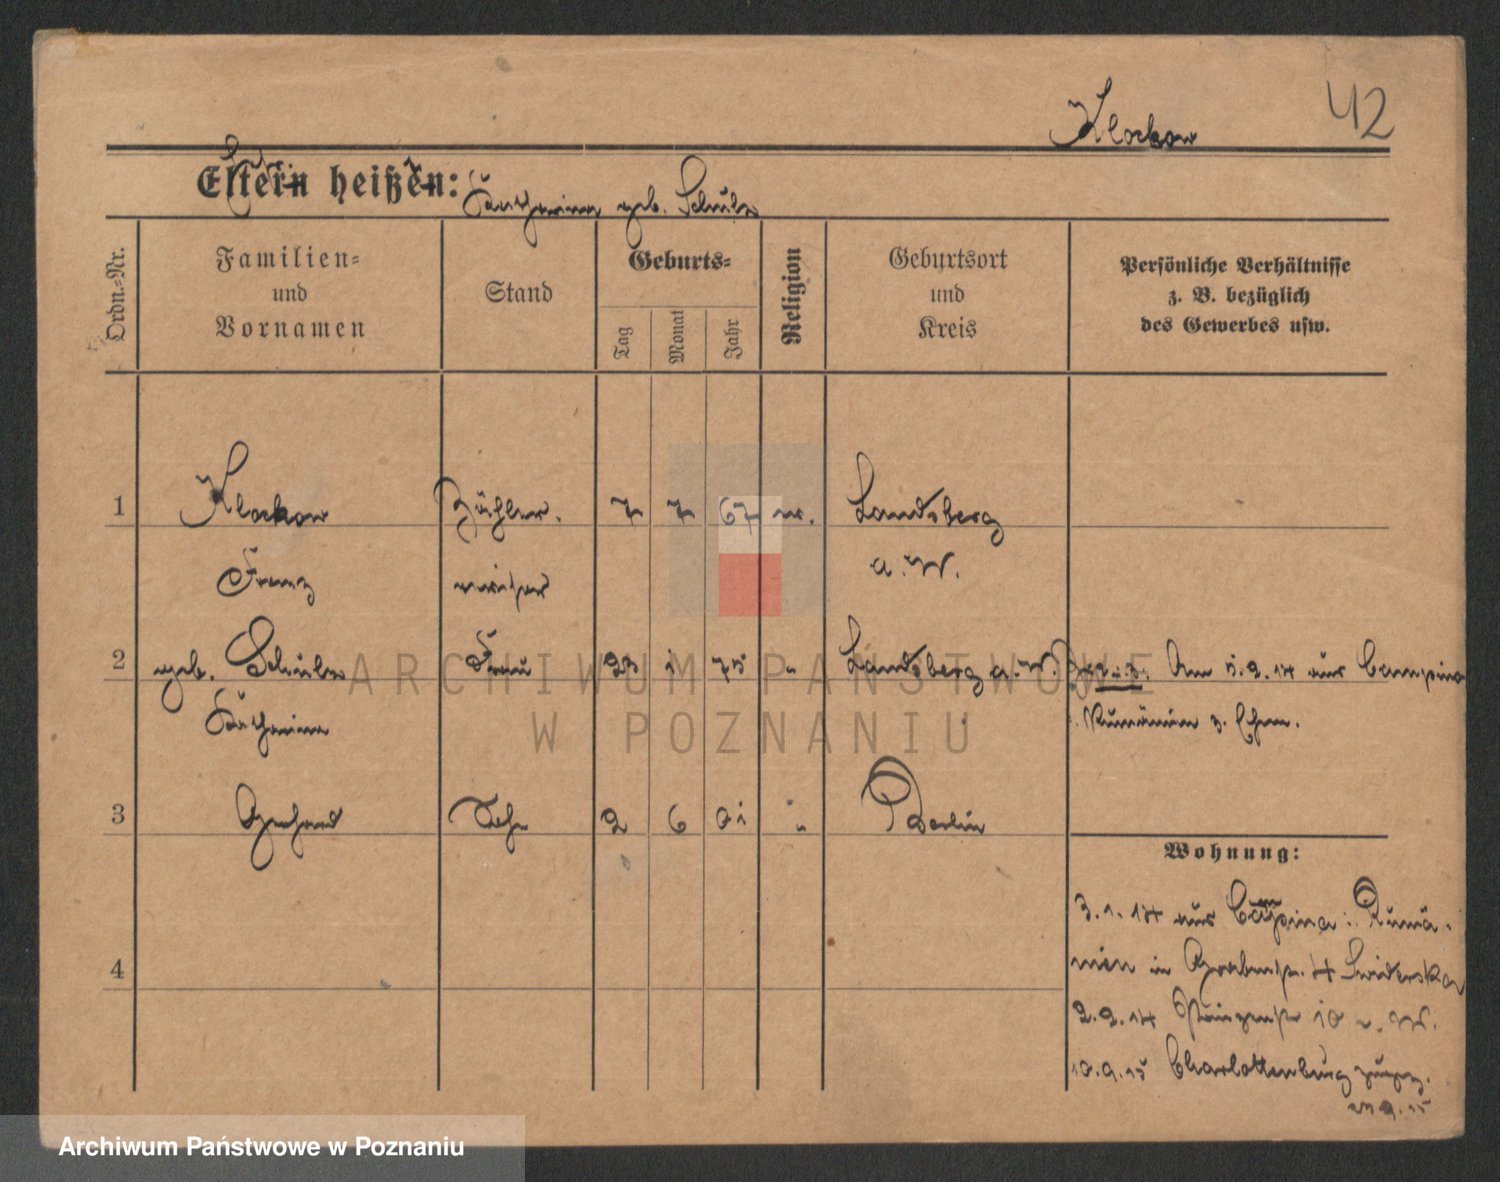 Klockow 42
Eltern heißen:
Katharina geb. Schulz
Ordn.-Nr.
Familien-
und
Vornamen
Stand
Geburts-
Tag
Monat
Jahr
Religion
Geburtsort
und
Kreis
Persönliche Verhältnisse
z. B. bezüglich
des Gewerbes usw.
1 Klockow 7 7 67 ev. Landsberg
Franz a. W.
2 geb. Schulz Frau 23 1 75 " Landsberg a. W. Am 5.2.14 aus Campina
Katharina Rumänien z. Ehm.
3 Gerhard Sohn 2 6 01 " Berlin
Wohnung:
3.1.14 aus Campina i. Rumä-
4 nien in Grabenstr. 4
2.2.14 Prinzenstr 10
10.9.15 Charlottenburg
ARCHIWUM PAŃSTWOWE
W POZNANIU
Archiwum Państwowe w Poznaniu